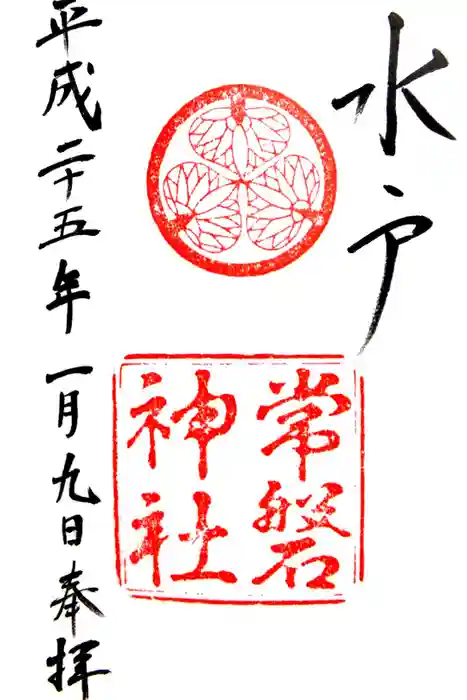 水戸
常磐
神社
平成二十五年一月九日奉拝